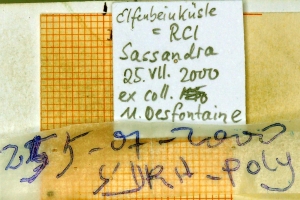 Elfenbeinküste
= RCI
Sassandra
25. VII. 2000
ex coll.
M. Desfontaine
25-07-2000
-Poly